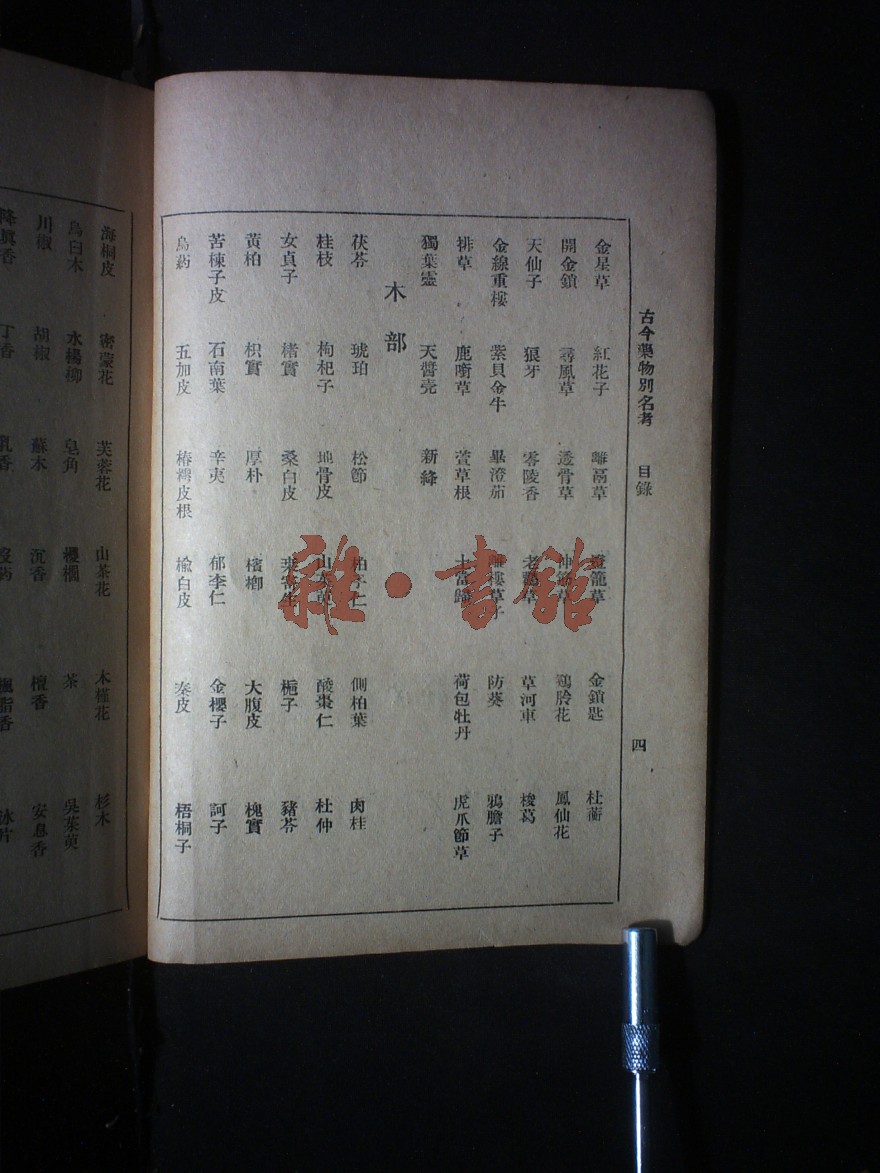 古今藥物別名考 目錄 四
金星草 紅花子 離鬲草 燈籠草 金鎖匙 杜蘅
開金鎖 尋風草 透骨草 伸筋草 鵶胗花 鳳仙花
天仙子 狼牙 零陵香 老鸛草 草河車 梭葛
金線重樓 紫貝金牛 畢澄茄 防葵 鴉膽子
排草 鹿啣草 萱草根 土當歸 荷包牡丹 虎爪節草
獨葉靈 天醬壳 新絳
木部
茯苓 琥珀 松節 柏子仁 側柏葉 肉桂
桂枝 枸杞子 地骨皮 酸棗仁 杜仲
女貞子 楮實 桑白皮 桑寄生 梔子 豬苓
黃柏 枳實 厚朴 檳榔 大腹皮 槐實
苦楝子皮 石南葉 辛夷 郁李仁 金櫻子 訶子
烏葯 五加皮 椿樗皮根 楡白皮 秦皮 梧桐子
海桐皮 密蒙花 芙蓉花 山茶花 木槿花 杉木
烏臼木 水楊柳 皂角 櫻櫚 茶 吳茱萸
川椒 胡椒 蘇木 沉香 檀香 安息香
降眞香 丁香 乳香 沒葯 楓脂香 冰片
雜·書館